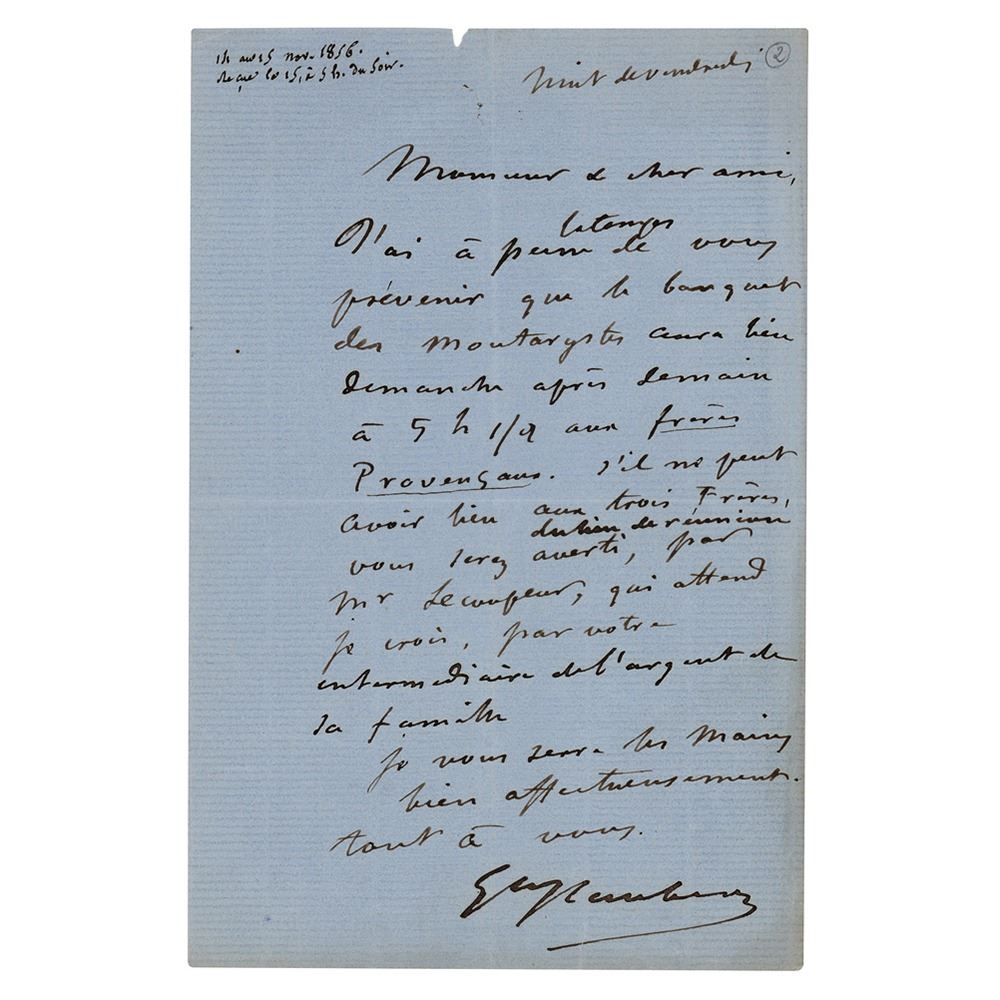 14 au 15 nov. 1856.
reçue le 15, à 5 h. du soir.
nuit de vendredi
2
Monsieur & cher ami,
J'ai à peine le temps de vous
prévenir que le banquet
des Moutarystes aura lieu
dimanche après demain
à 5 h 1/2 aux frères
Provençaux. s'il ne peut
avoir lieu aux trois Frères,
vous serez averti, du lieu de réunion par
mr Lecoupeur, qui attend
je crois, par votre
intermédiaire de l'argent de
sa famille
je vous serre les mains
bien affectueusement.
tout à vous.
Gve Flaubert